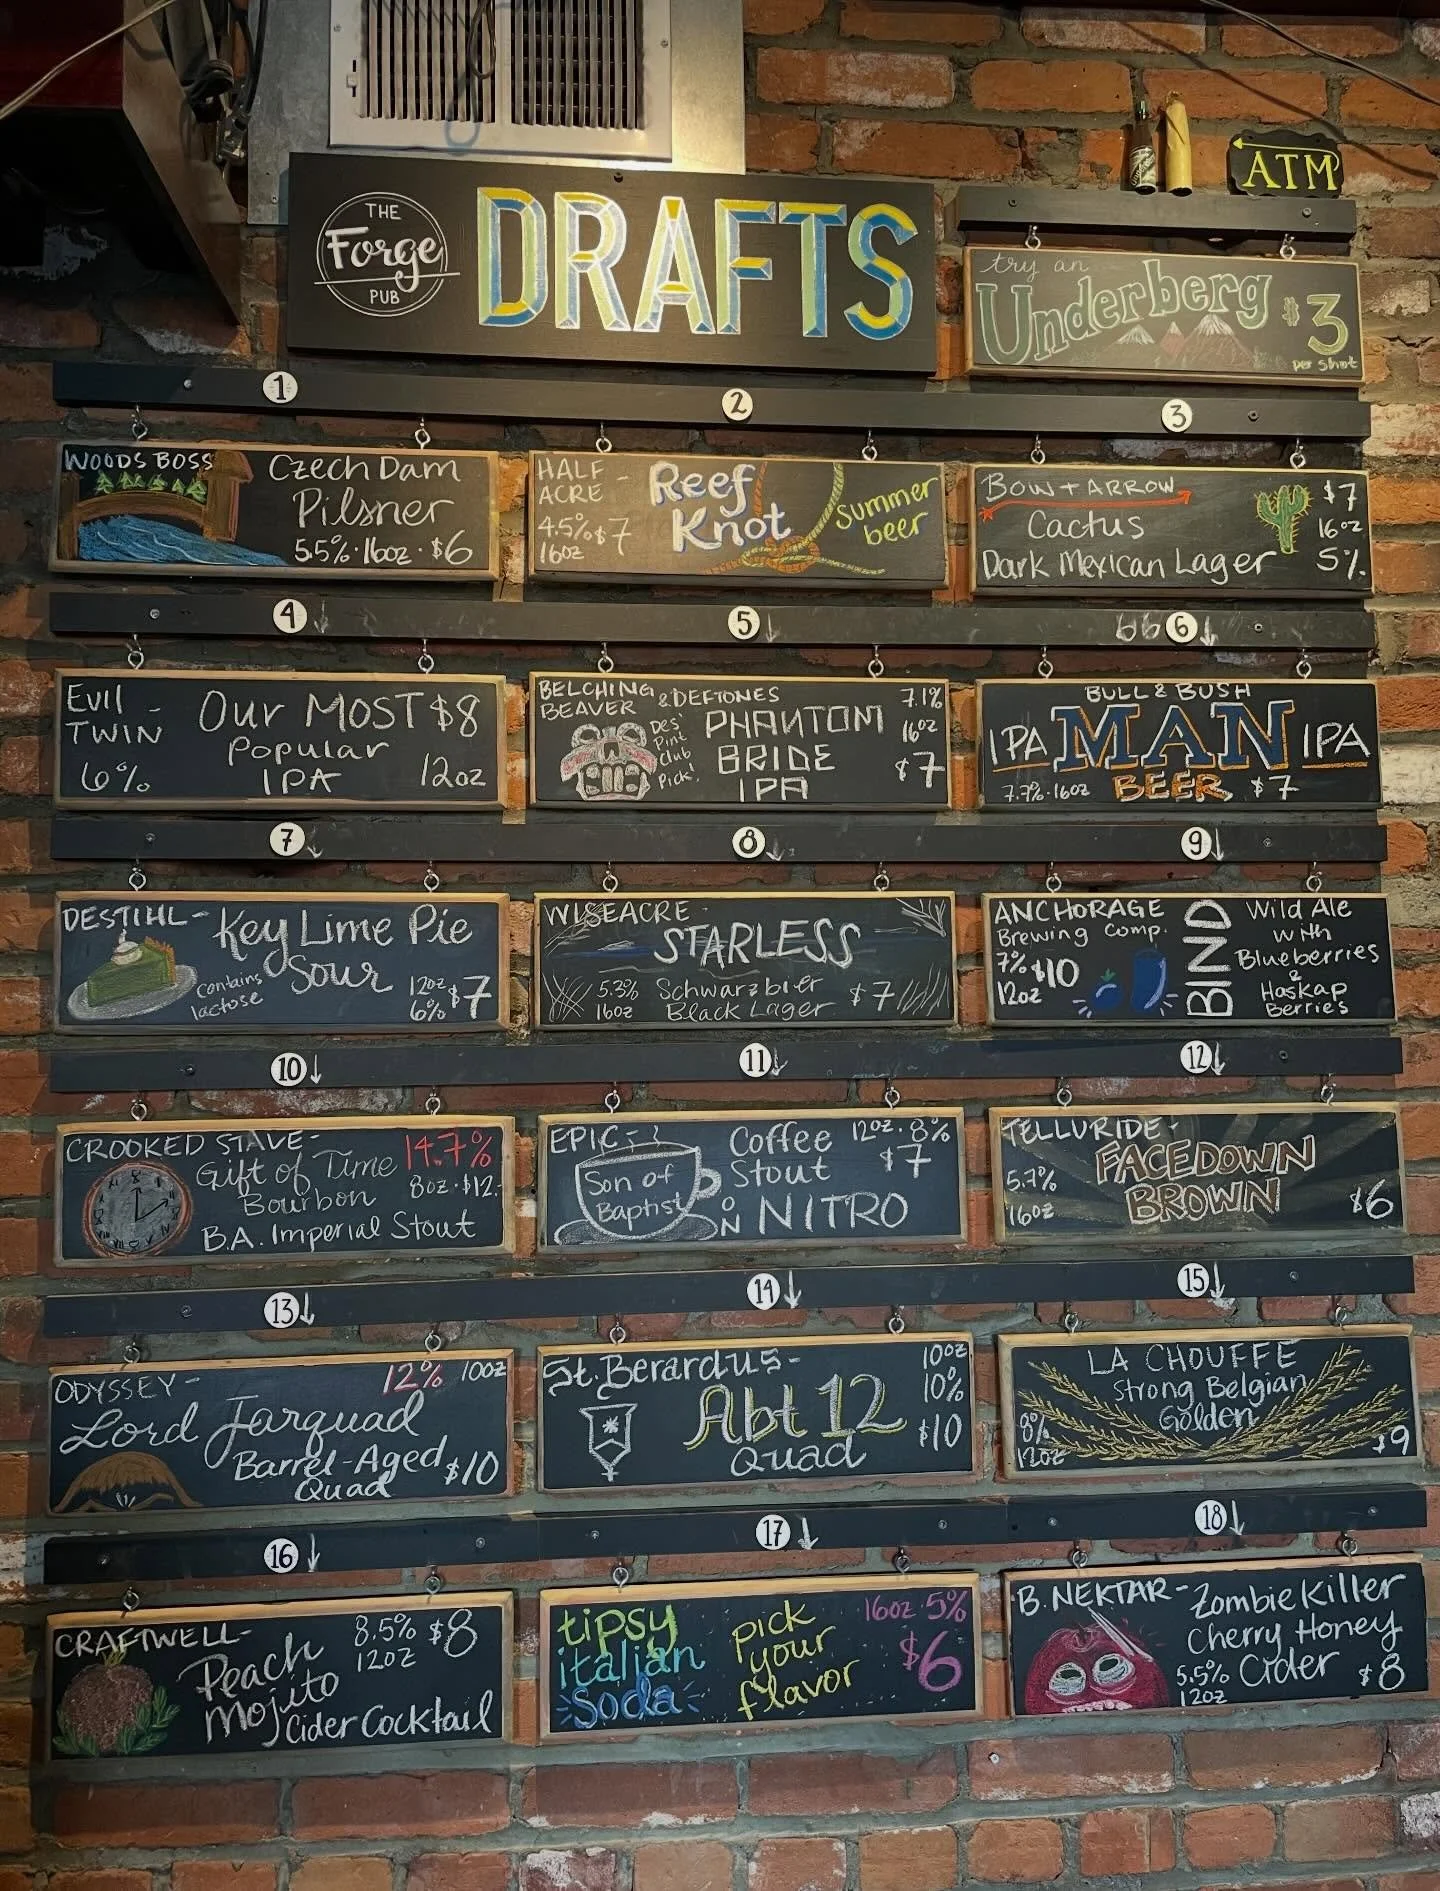 THE
Forge
PUB
DRAFTS
ATM
try an
Underberg
$3
per shot
1
2
3
WOODS BOSS
Czech Dam
Pilsner
5.5% · 16oz · $6
HALF
ACRE -
4.5% $7
16oz
Reef
Knot
Summer
beer
BOW + ARROW
Cactus
Dark Mexican Lager
$7
16oz
5%
4
5
66 6
EVIL
TWIN -
6%
Our MOST
Popular
IPA
$8
12oz
BELCHING & DEFTONES
BEAVER
Des'
Pint
Club
Pick!
PHANTOM
BRIDE
IPA
7.1%
16oz
$7
BULL & BUSH
IPA MAN IPA
7.7% · 16oz BEER $7
7
8
9
DESTIHL -
Key Lime Pie
Sour
contains
lactose
12oz
6% $7
WISEACRE -
STARLESS
5.3%
16oz
Schwarzbier
Black Lager
$7
ANCHORAGE
Brewing Comp.
7% $10
12oz
BIND
Wild Ale
with
Blueberries
&
Haskap
Berries
10
11
12
CROOKED STAVE -
Gift of Time
Bourbon
B.A. Imperial Stout
14.7%
8oz · $12.-
EPIC -
Son of
Baptist
Coffee
Stout
ON NITRO
12oz · 8%
$7
TELLURIDE -
5.7%
16oz
FACEDOWN
BROWN
$6
13
14
15
ODYSSEY -
12% 10oz
Lord Farquad
Barrel-Aged
Quad
$10
St. Berardus -
Abt 12
Quad
10oz
10%
$10
LA CHOUFFE
Strong Belgian
Golden
8%
12oz
$9
16
17
18
CRAFTWELL -
Peach
Mojito
Cider Cocktail
8.5% $8
12oz
tipsy
italian
Soda
pick
your
flavor
16oz 5%
$6
B. NEKTAR - Zombie Killer
Cherry Honey
Cider
5.5%
12oz
$8